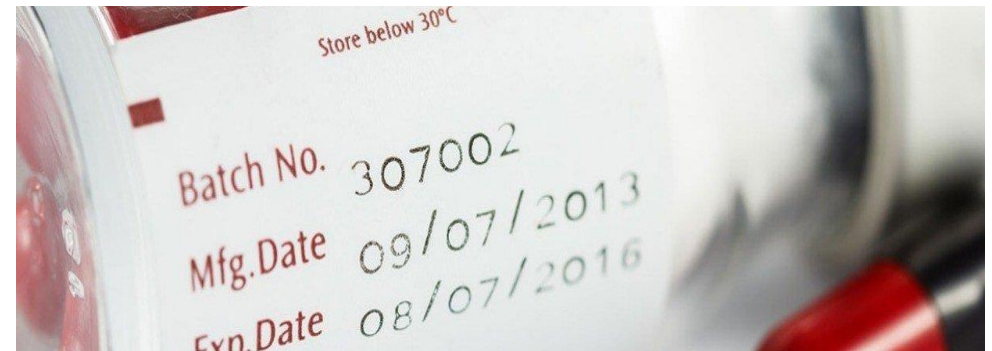 Store below 30°C
Batch No. 307002
Mfg.Date 09/07/2013
Exp.Date 08/07/2016